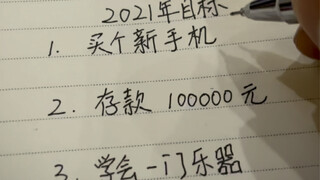 2021年目标
1. 买个新手机
2. 存款 100000 元
3. 学会一门乐器